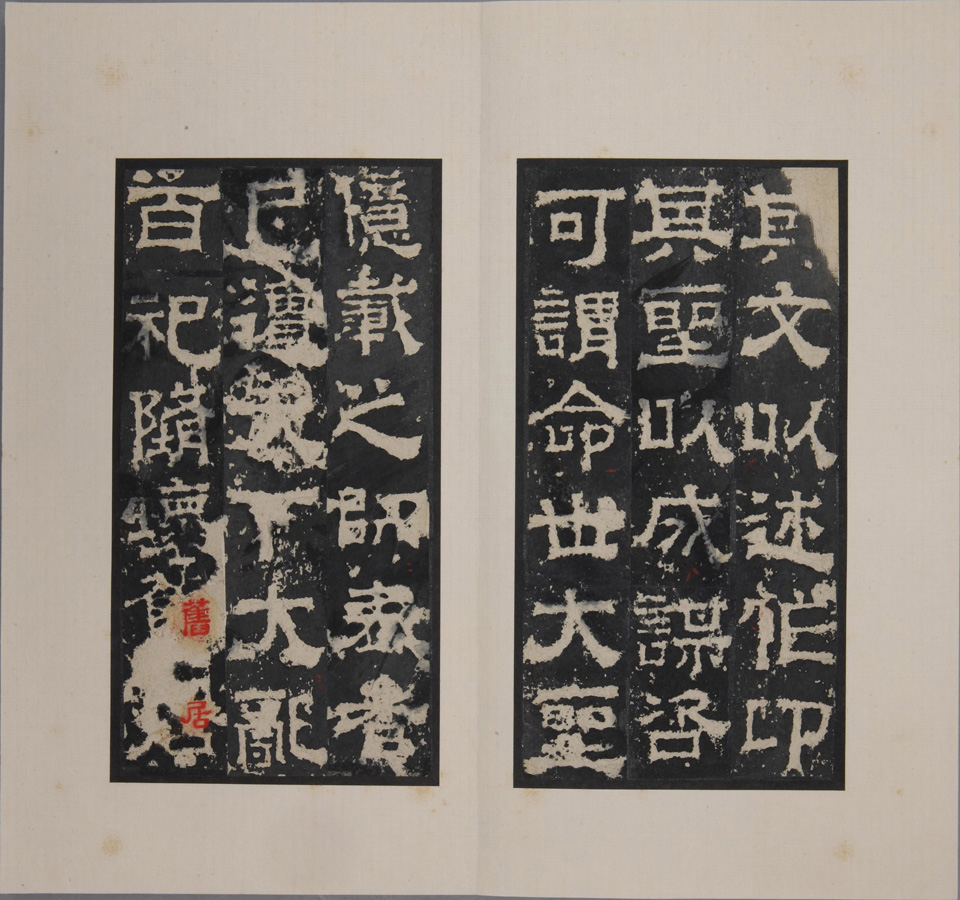 其文以述作卬
其聖以成謀咨
可謂命世大聖
億載之師表者
已遭天下大亂
百祀隋壞舊居
舊
居